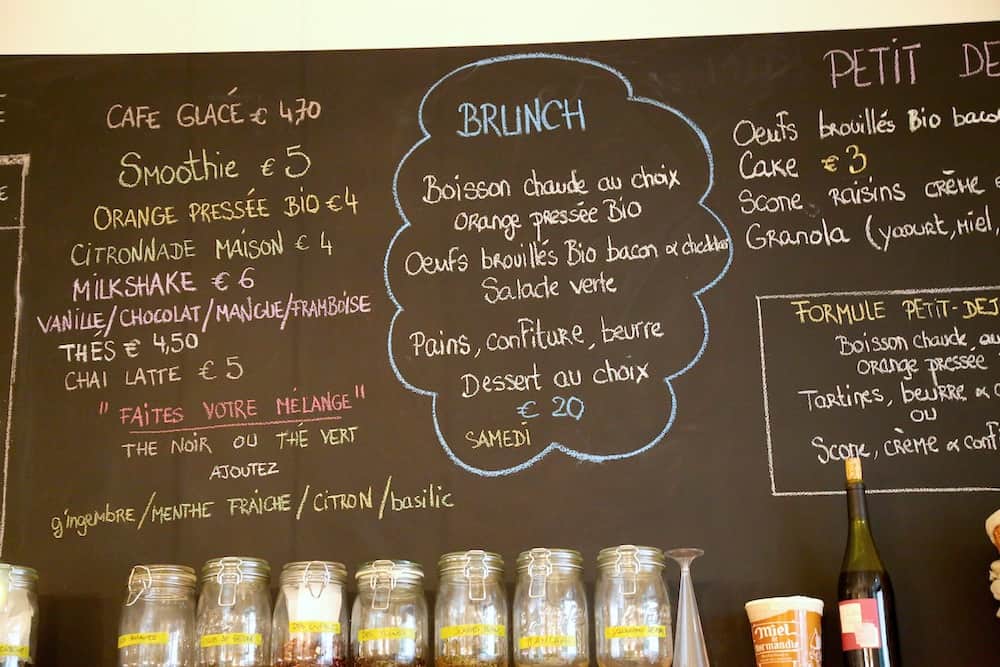 CAFE GLACÉ € 4,70
Smoothie € 5
ORANGE PRESSÉE BIO € 4
CITRONNADE MAISON € 4
MILKSHAKE € 6
VANILLE/CHOCOLAT/MANGUE/FRAMBOISE
THÉS € 4,50
CHAI LATTE € 5
"FAITES VOTRE MÉLANGE"
THE NOIR OU THÉ VERT
AJOUTEZ
gingembre/MENTHE FRAICHE/CITRON/basilic
BRUNCH
Boisson chaude au choix
Orange pressée Bio
Oeufs brouillés Bio bacon & cheddar
Salade verte
Pains, confiture, beurre
Dessert au choix
€ 20
SAMEDI
PETIT DE
Oeufs brouillés Bio bacon
Cake € 3
Scone Raisins crème
Granola (yaourt, miel,
FORMULE PETIT-DEJ
Boisson chaude, au
Orange pressée
Tartines, beurre &
OU
Scone, crème & conf
Miel
de
Normandie